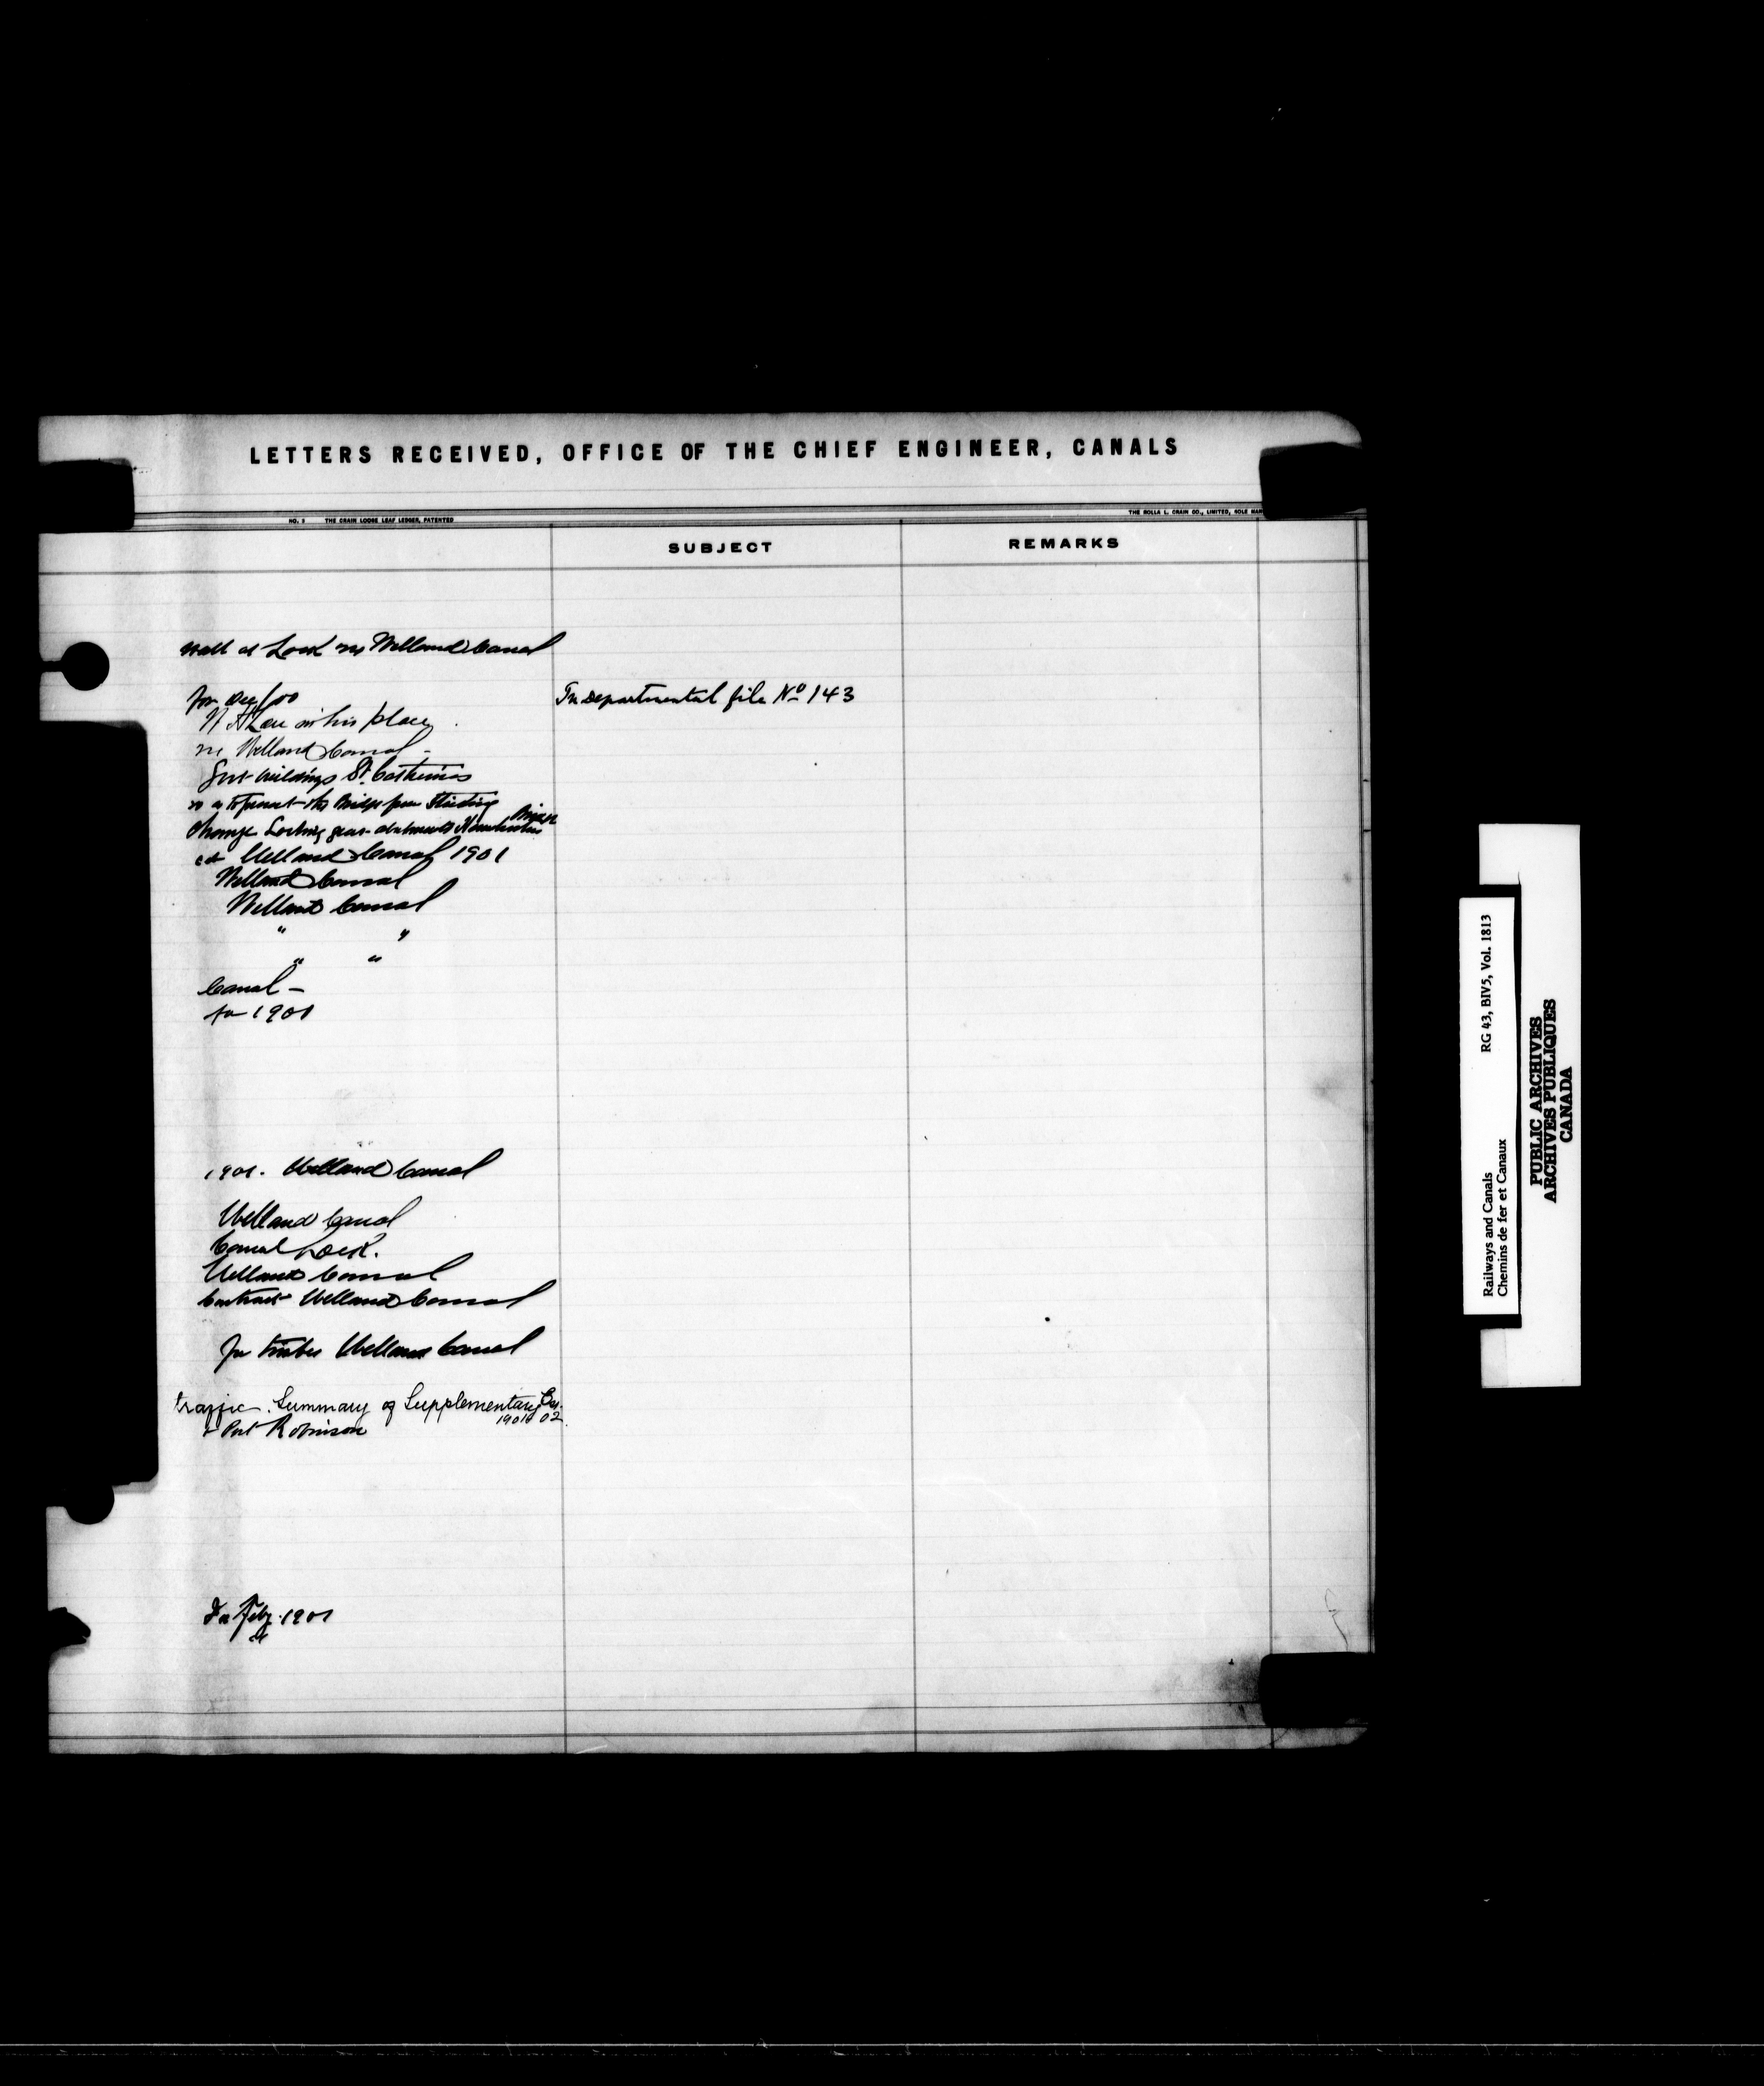 LETTERS RECEIVED, OFFICE OF THE CHIEF ENGINEER, CANALS
NO. 3 THE CRAIN LOOSE LEAF LEDGER, PATENTED
THE ROLLA L. CRAIN CO., LIMITED, SOLE MAN
SUBJECT
REMARKS
Wall at Lock Welland Canal
for Dec/00
In Departmental file No 143
in his place
Welland Canal -
buildings St. Catherines
the Bridge from
Bridge
Change Locking gear
Welland Canal 1901
Welland Canal
Welland Canal
" "
" "
Canal -
for 1901
1901. Welland Canal
Welland Canal
Canal Lock.
Welland Canal
Contract Welland Canal
for timber Welland Canal
traffic. Summary of Supplementary Es.
1901 02
& Port Robinson
For Feby. 1901
Railways and Canals RG 43, BIV5, Vol. 1813
Chemins de fer et Canaux
PUBLIC ARCHIVES
ARCHIVES PUBLIQUES
CANADA